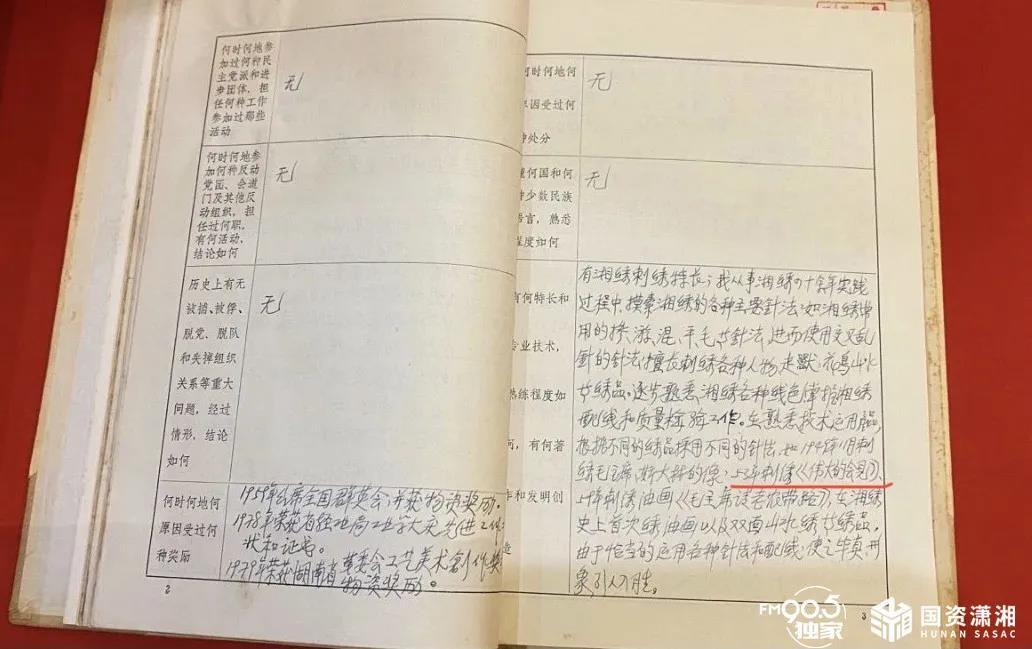 何时何地参
加过何种民
主党派和进
步团体，担
任何种工作
参加过那些
活动
无
何时何地参
加何种反动
党团、会道
门及其他反
动组织，担
任过何职，
有何活动，
结论如何
无
历史上有无
被捕、被俘、
脱党、脱队
和失掉组织
关系等重大
问题，经过
情形，结论
如何
无
何时何地何
原因受过何
种奖励
1959年出席全国群英会，并获物资奖励。
1978年荣获省轻工业学大庆先进工作
状和证书。
1979年荣获湖南省革委会工艺美术创作奖
物资奖励。
2
何时何地何
原因受过何
种处分
无
懂何国和何
种少数民族
语言，熟悉
程度如何
无
有何特长和
专业技术，
熟练程度如
何，有何著
作和发明创
造
有湘绣刺绣特长；我从事湘绣四十余年实践
过程中，摸索湘绣的各种主要针法：如湘绣常
用的掺、游、混、平、毛等针法，进而使用交叉乱
针的针法，擅长刺绣各种人物走兽、花鸟山水
等绣品。逐步熟悉湘绣各种线色
配线和质量检验工作。在熟悉技术运用
根据不同的绣品采用不同的针法，如
绣毛主席、斯大林的像；53年刺绣《伟大的会见》，
刺绣油画《毛主席》，在湘绣
史上首次绣油画以及双面山水绣等绣品。
由于恰当的运用各种针法和配线，使之毕真形
象引人入胜。
3
FM90.5
独家
国资潇湘
HUNAN SASAC